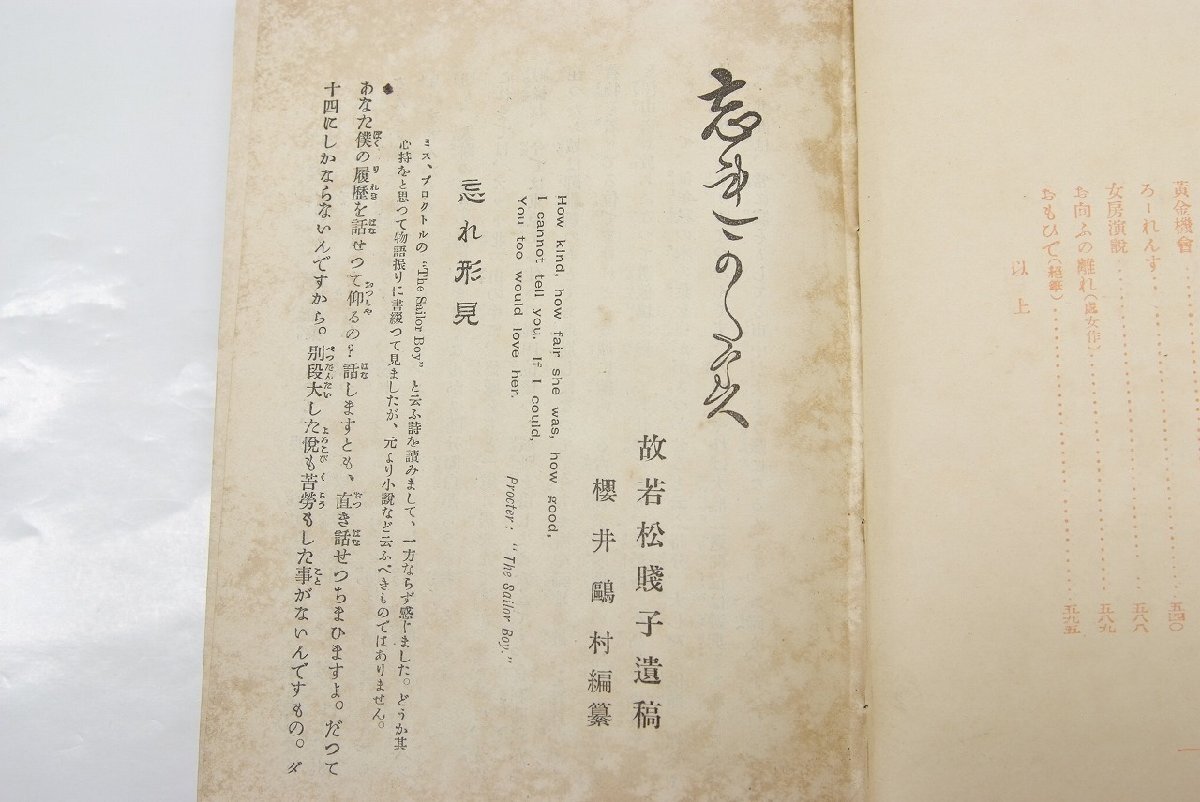 黄金機會
ろーれんす……………五四〇
女房演説……………五六八
お向ふの離れ(處女作)……………五八九
おもひで(絕筆)……………五九五
以上
忘れかたみ
故若松賤子遺稿
櫻井鷗村編纂
How kind, how fair she was, how good,
I cannot tell you. If I could,
You too would love her.
Procter: “The Sailor Boy.”
忘れ形見
ミス、プロクトルの“The Sailor Boy”と云ふ詩を讀みまして、一方ならず感じました。どうか其
心持をと思つて物語振りに書綴つて見ましたが、元より小說など云ふべきものではありません。
あなた僕の履歷を話せつて仰るの？話しますとも、直き話せつちまひますよ。だつて
十四にしかならないんですから。別段大した悅も苦勞もした事がないんですもの。ダ